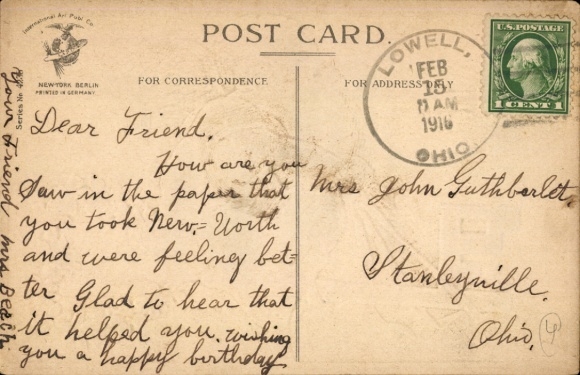 International Art Publ. Co.
NEW-YORK BERLIN
PRINTED IN GERMANY
POST CARD.
FOR CORRESPONDENCE
FOR ADDRESS ONLY
LOWELL,
FEB
15
11 AM
1916
OHIO
U.S. POSTAGE
1 CENT 1
Dear Friend.
How are you
Saw in the paper that
you took Nerv=Worth
and were feeling bet=
ter Glad to hear that
it helped you. wishing
you a happy birthday
your Friend Mrs Beach
Mrs John Guthberlet
Stanleyville.
Ohio.
Series No